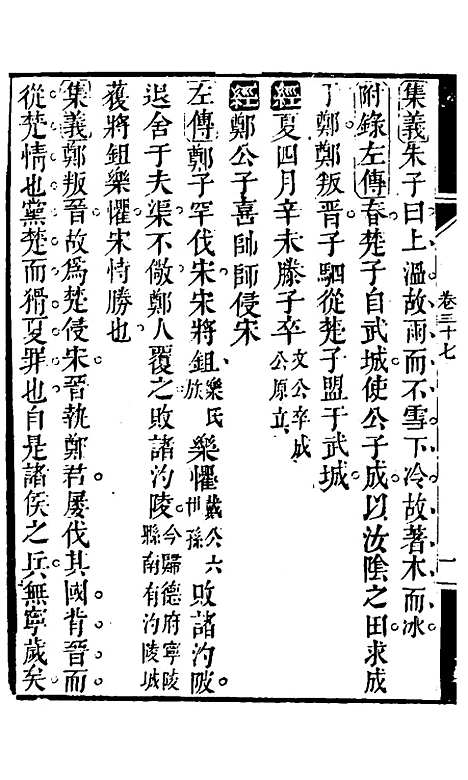 集義朱子曰上溫故雨而不雪下冷故著木而冰
附錄左傳春楚子自武城使公子成以汝陰之田求成
于鄭鄭叛晉子駟從楚子盟于武城
經夏四月辛未滕子卒文公卒成公原立
經鄭公子喜帥師侵宋
左傳鄭子罕伐宋宋將鉏樂氏族樂懼戴公六世孫敗諸汋陂
退舍于夫渠不儆鄭人覆之敗諸汋陵今歸德府寧陵縣南有汋陵城
獲將鉏樂懼宋恃勝也
集義鄭叛晉故為楚侵宋晉執鄭君屢伐其國背晉而
從楚情也黨楚而猾夏罪也自是諸侯之兵無寧歲矣
卷三十七